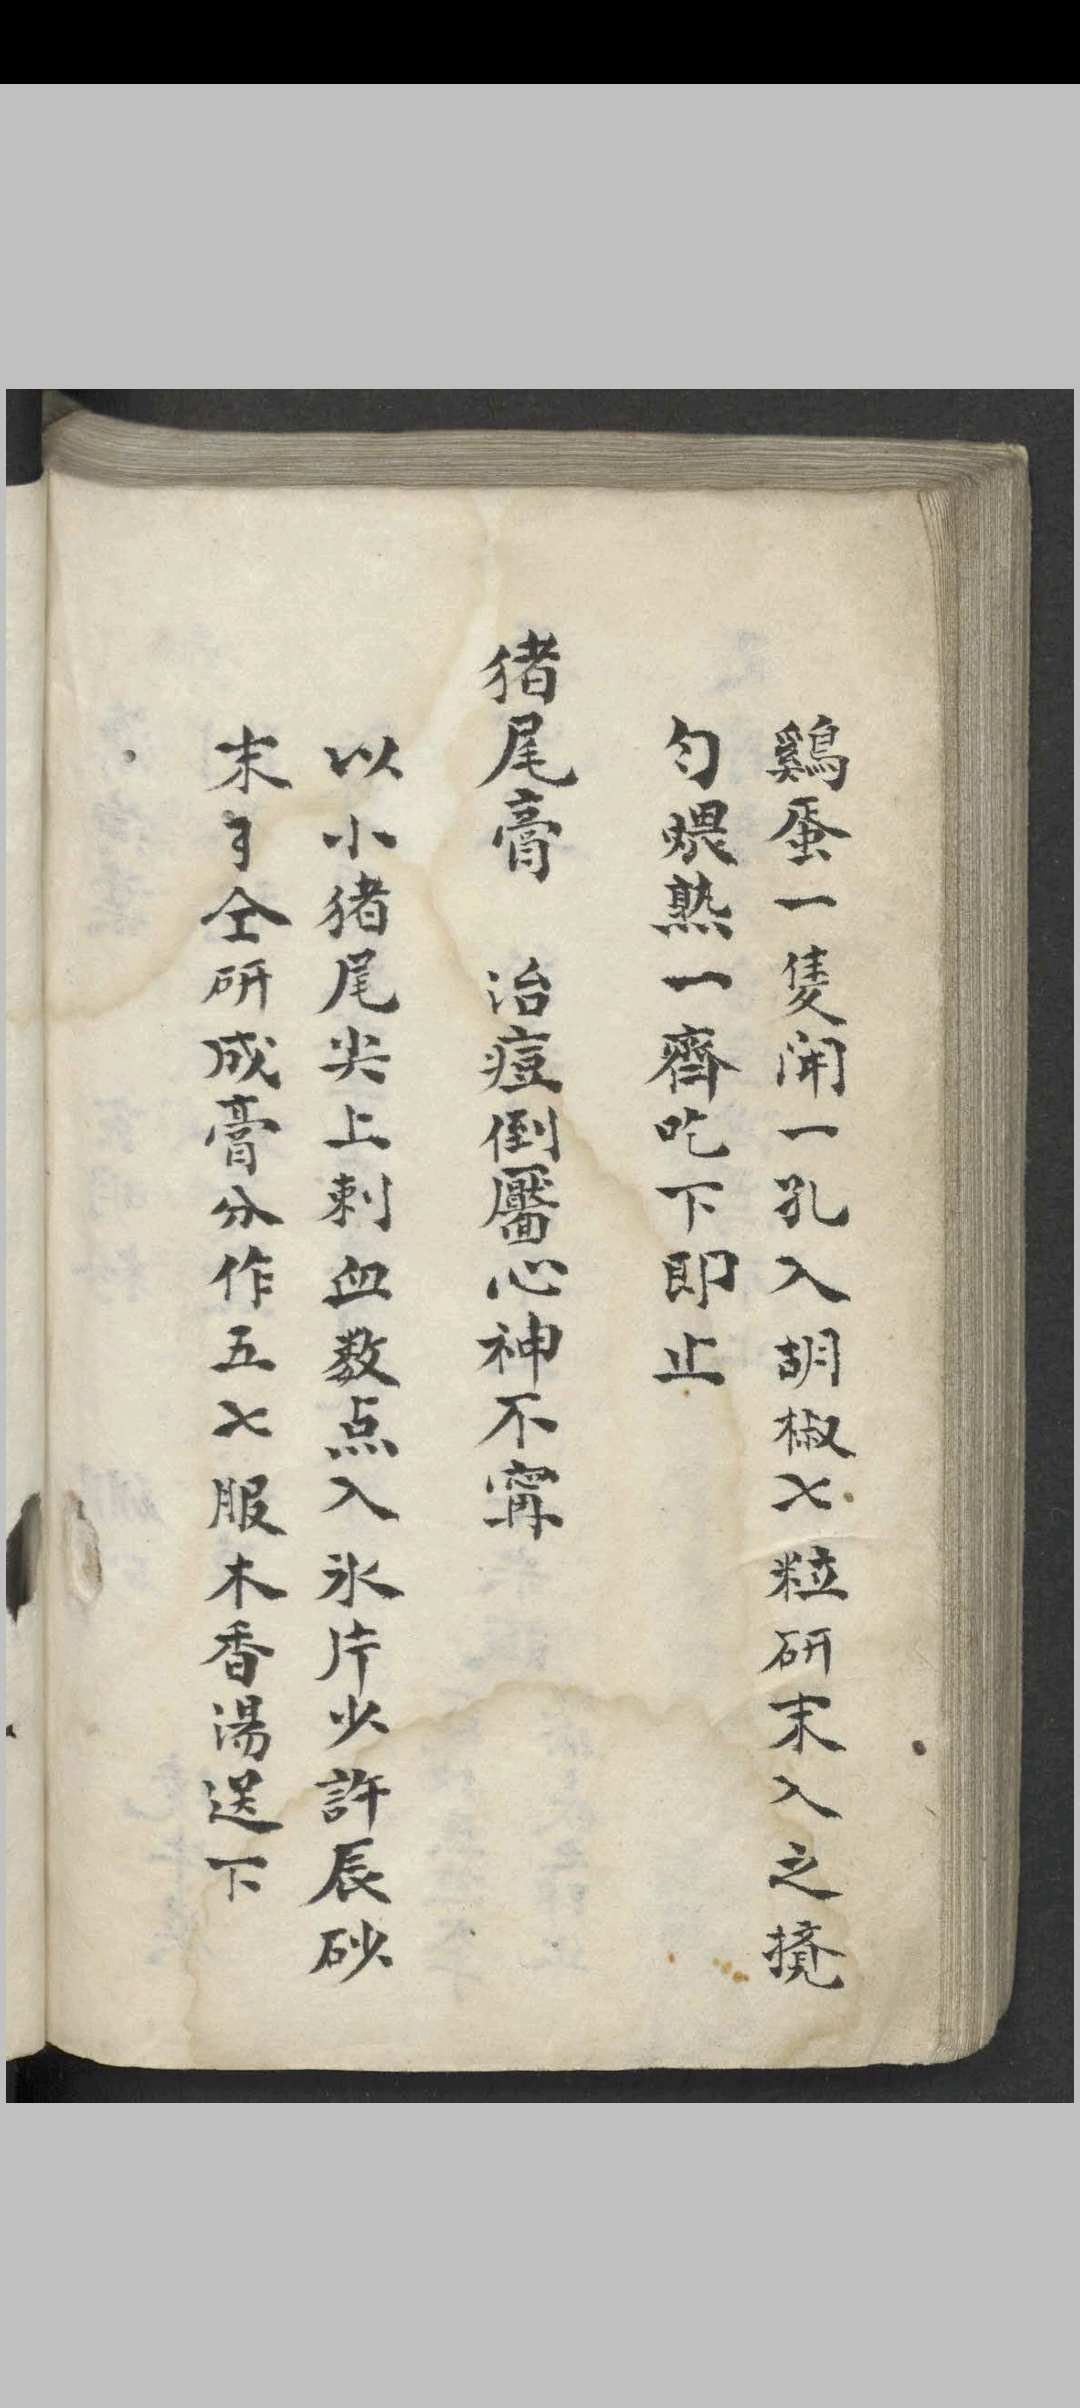 鷄蛋一隻開一孔入胡椒七粒研末入之攪
勻煨熟一齊吃下即止
猪尾膏　治痘倒靨心神不寧
以小猪尾尖上刺血数点入氷片少許辰砂
末　仝研成膏分作五七服木香湯送下